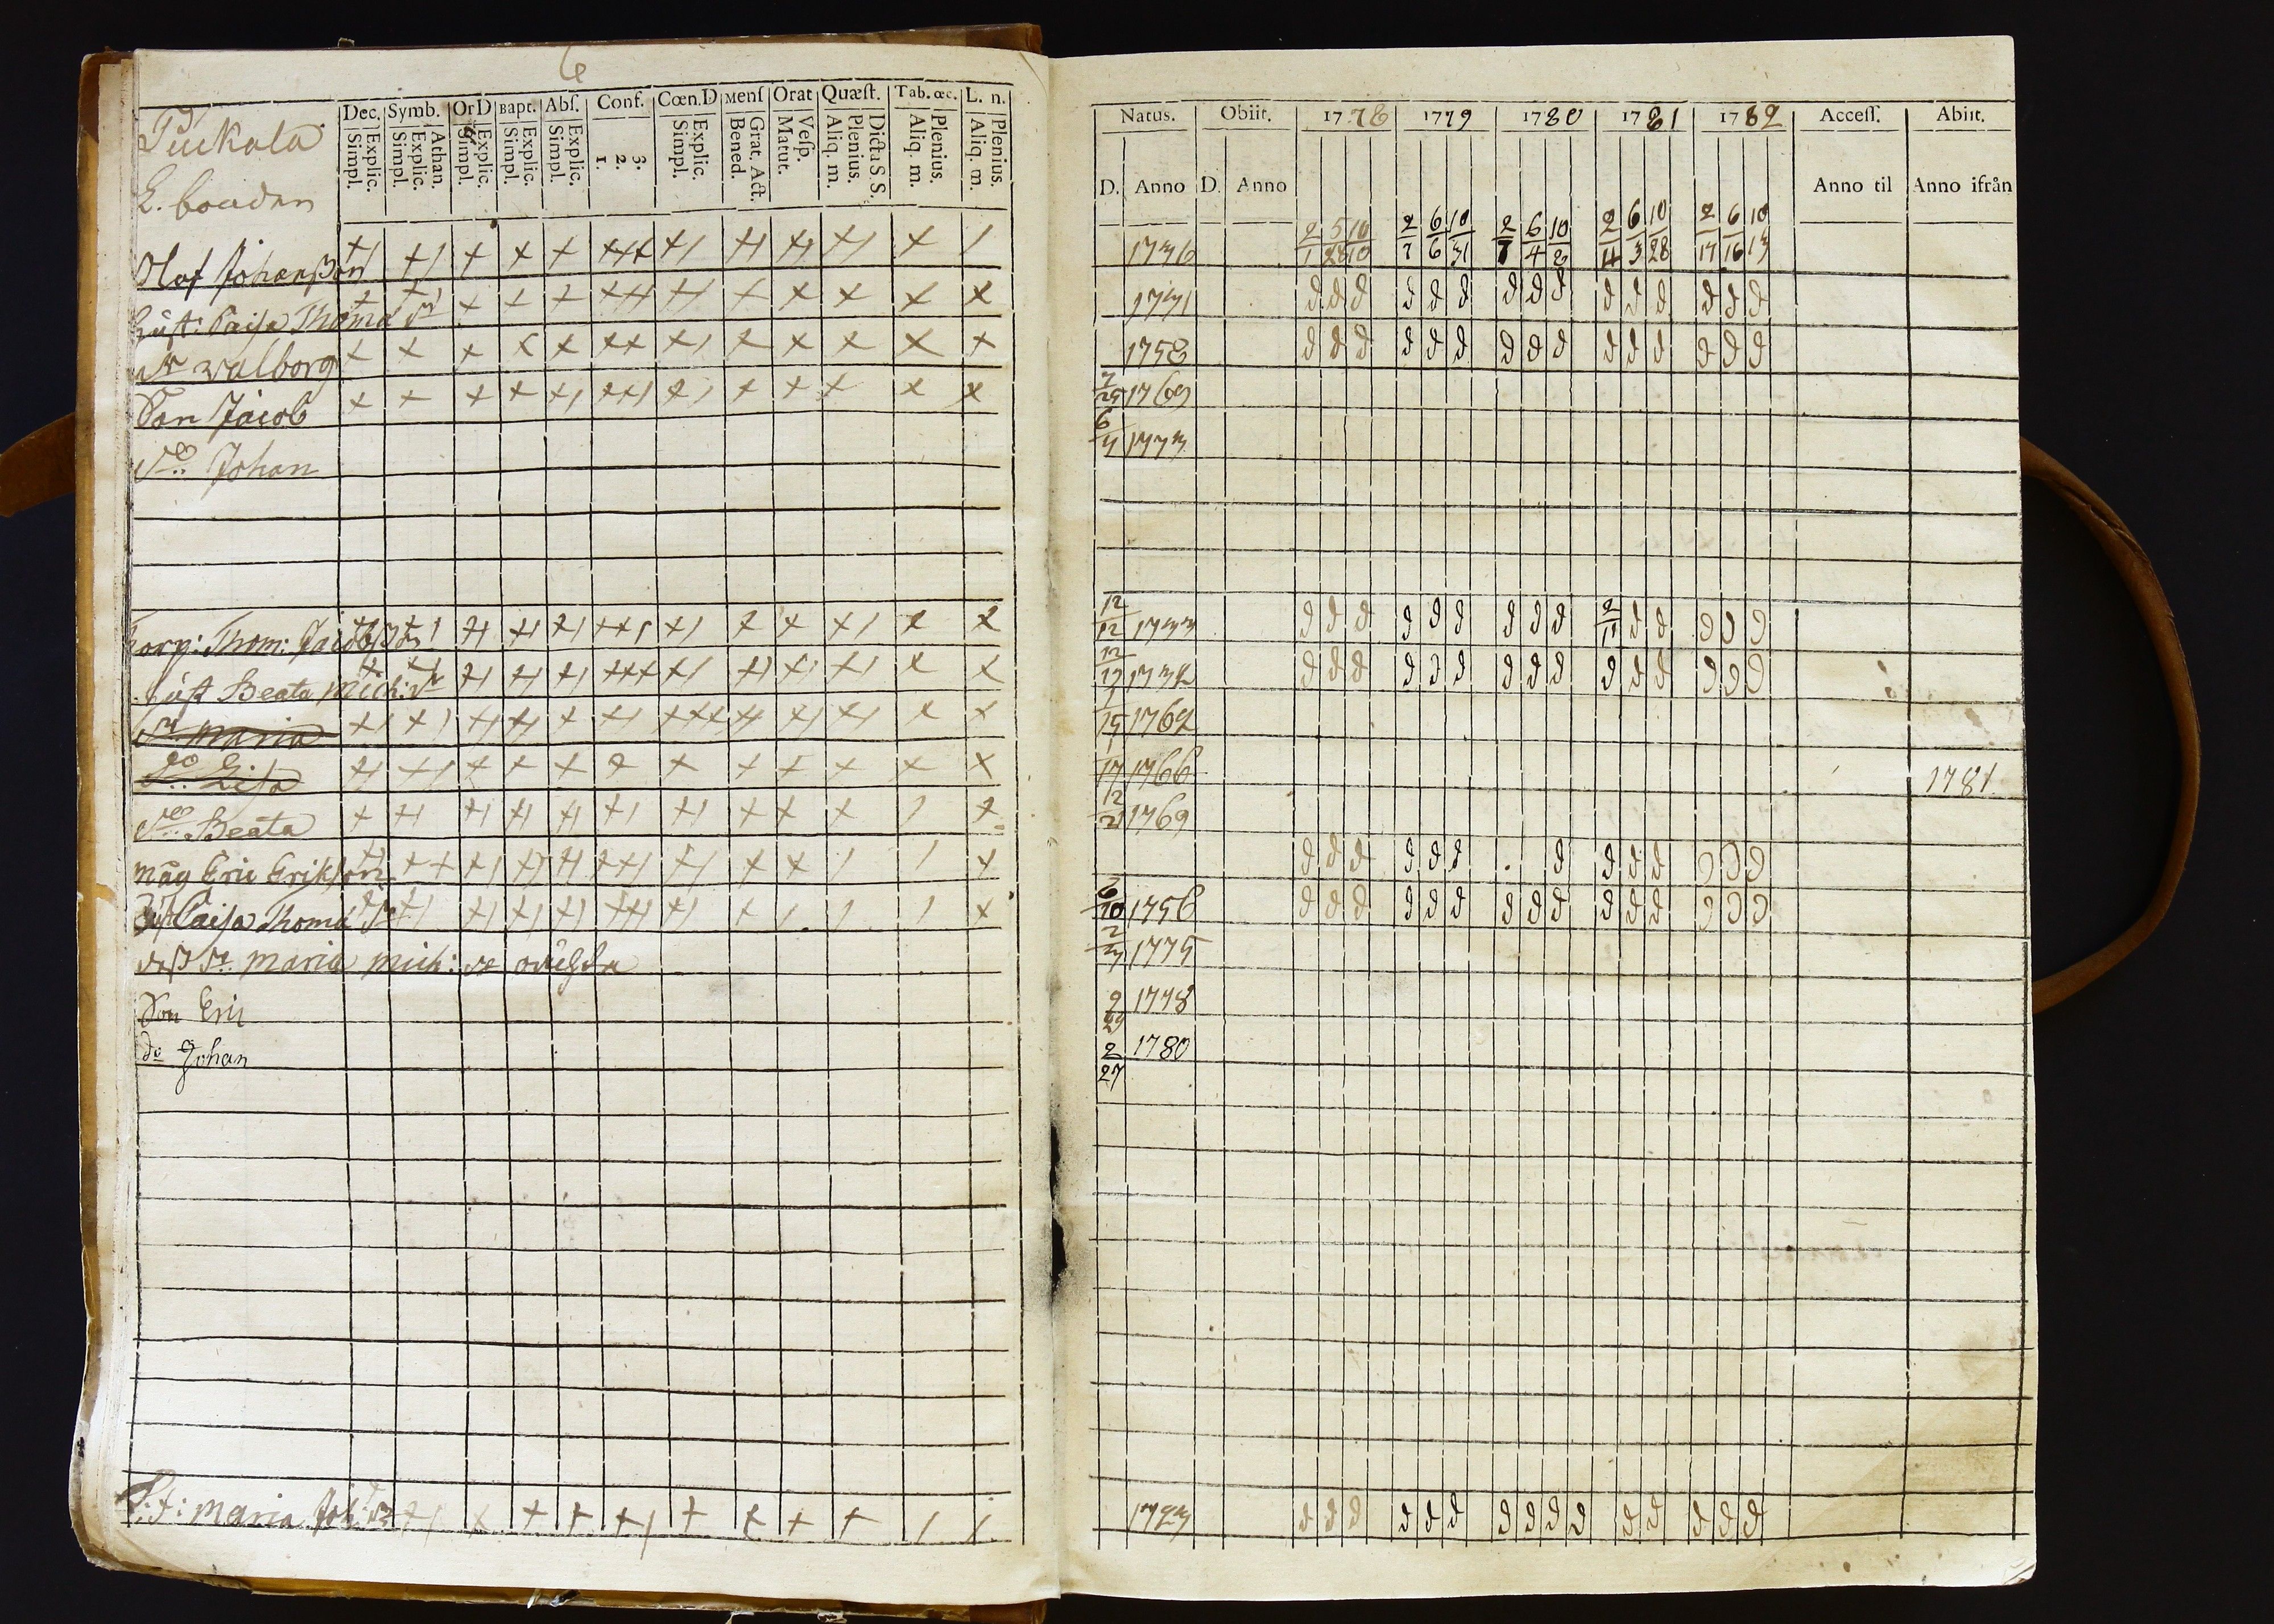 6
Dec. Symb. OrD Bapt. Abſ. Conf. Cœn.D Menſ Orat Quæſt. Tab. œc. L. n.
Explic. Simpl. Athan. Explic. Simpl. Explic. Simpl. Explic. Simpl. Explic. Simpl. 3. 2. 1. Explic. Simpl. Grat. Act. Bened. Veſp. Matut. Dicta S.S. Plenius. Aliq. m. Plenius. Aliq. m. Plenius. Aliq. m.
Natus. Obiit. 1778 1779 1780 1781 1782 Acceſſ. Abiit.
D. Anno D. Anno Anno til Anno ifrån
Puckala
L. bonden
2 5 10 2 6 10 2 6 10 2 6 10 2 6 10
Olof Johansson 1736 1 28 10 7 6 31 7 4 8 11 3 28 17 16 13
hust: Caisa Thomæ dr 1731 d d d d d d d d d d d d d d d
dr Walborg 1758 d d d d d d d d d d d d d d d
Son Jacob 1769
do Johan 6/7 1773
Torp: Thom: Jacobsson 12/12 1733 d d d d d d d d d 2/11 d d d d d
hust Beata Mich: dr 1734 d d d d d d d d d d d d d d d
dr Maria 1762
do Lisa 1766 1781
do Beata 12/21 1769
måg Eric Eriksson d d d d d d d d d d d d d
hust Caisa Thomæ dr 6/10 1756 d d d d d d d d d d d d d d d
dess dr Maria Mich: dr 2/7 1775
Son Eric 9/29 1778
do Johan 2/27 1780
Maria Joh: dr 1723 d d d d d d d d d d d d d d d